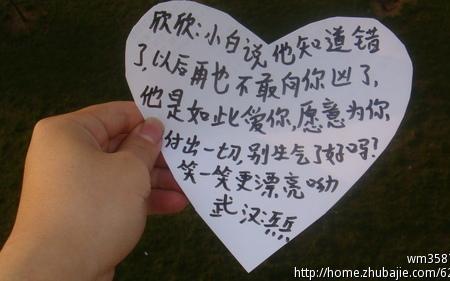 欣欣:小白说他知道错
了,以后再也不敢向你凶了,
他是如此爱你,愿意为你
付出一切,别生气了好吗?
笑一笑更漂亮呦
武汉:
wm3587
http://home.zhubajie.com/62